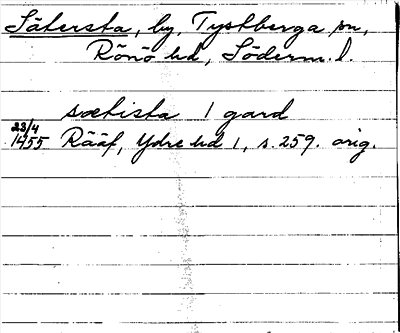 Sätersta, by, Tystberga sn,
Rönö hd, Söderm. l.
sætista 1 gard
23/4
1455 Rääf, Ydre hd 1, s. 259. orig.